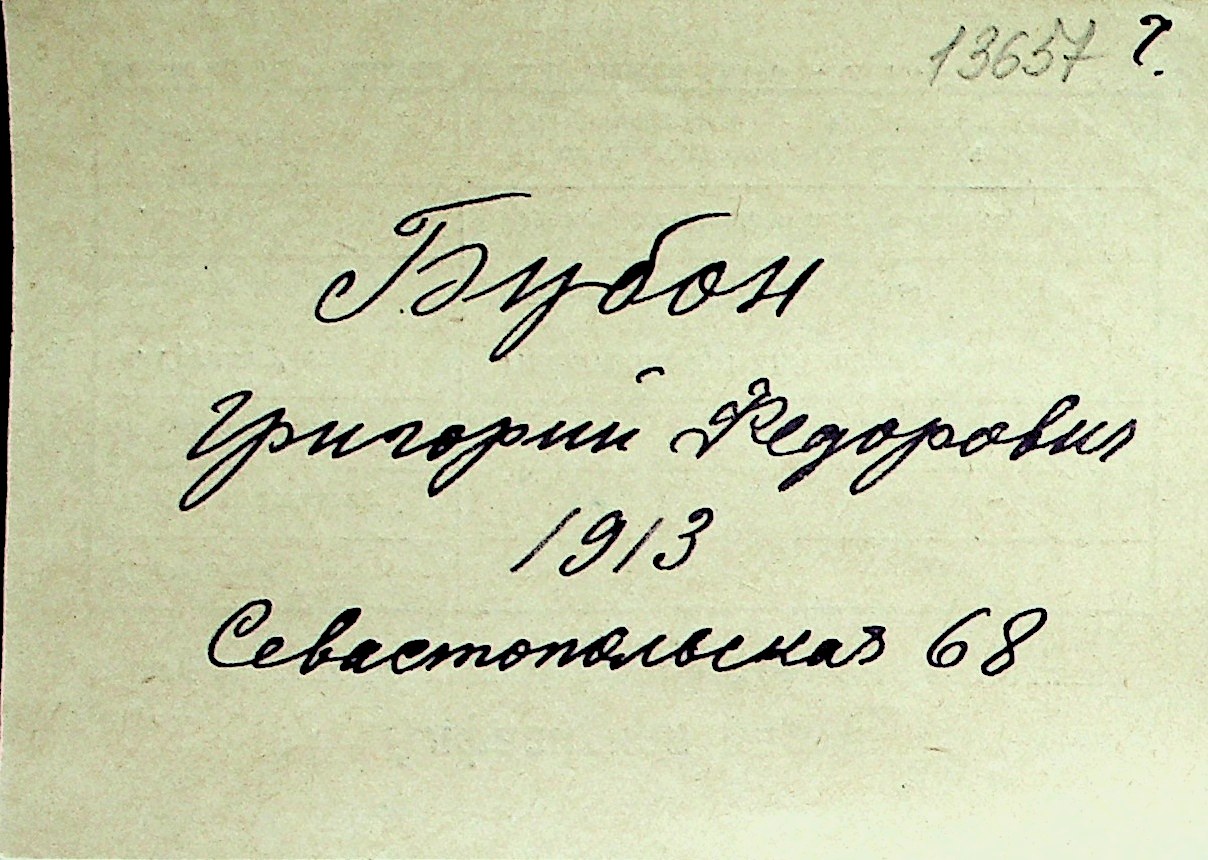 13657 ?
Бубон
Григорий Федорович
1913
Севастопольская 68